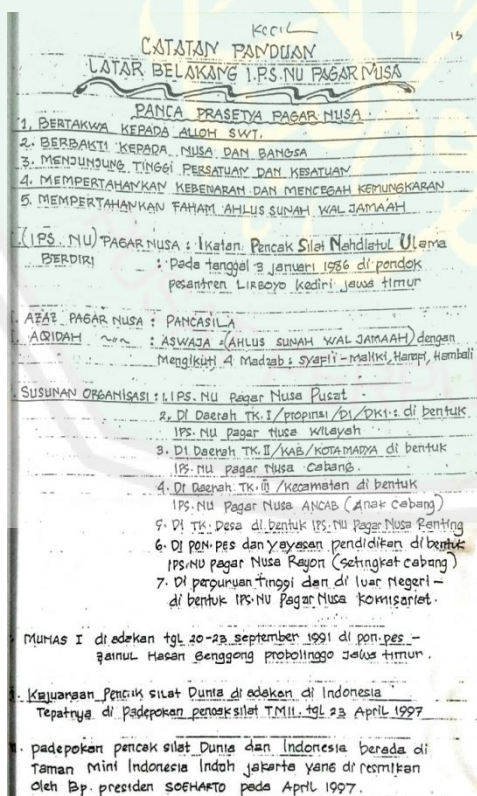 KECIL
15
CATATAN PANDUAN
LATAR BELAKANG I.P.S.NU PAGAR NUSA
PANCA PRASETYA PAGAR NUSA
1. BERTAKWA KEPADA ALLOH SWT.
2. BERBAKTI KEPADA NUSA DAN BANGSA
3. MENJUNJUNG TINGGI PERSATUAN DAN KESATUAN
4. MEMPERTAHANKAN KEBENARAN DAN MENCEGAH KEMUNGKARAN
5. MEMPERTAHANKAN FAHAM AHLUS SUNAH WAL JAMAAH
(IPS. NU) PAGAR NUSA : Ikatan Pencak Silat Nahdlatul Ulama
BERDIRI : Pada tanggal 3 januari 1986 di pondok
pesantren LIRBOYO kediri jawa timur
AZAZ PAGAR NUSA : PANCASILA
AQIDAH ~"~ : ASWAJA =(AHLUS SUNAH WAL JAMAAH) dengan
Mengikuti 4 Madzab : SYAFII - maliki, Hanapi, Hambali
SUSUNAN ORGANISASI : 1. IPS. NU Pagar Nusa Pusat
2. DI Daerah TK. I/propinsi/DI/DKI : di bentuk
IPS. NU pagar Nusa wilayah
3. DI Daerah TK. II/KAB/KOTAMADYA di bentuk
IPS. NU pagar Nusa Cabang.
4. DI Daerah TK. III /Kecamatan di bentuk
IPS. NU Pagar Nusa ANCAB (Anak Cabang)
5. DI TK. Desa di bentuk IPS. NU Pagar Nusa Ranting
6. DI PON. PES dan Yayasan pendidikan di bentuk
IPS.NU pagar Nusa Rayon (setingkat cabang)
7. DI perguruan tinggi dan di luar Negeri -
di bentuk IPS.NU Pagar Nusa Komisariat.
MUNAS I di adakan tgl 20-23 september 1991 di pon. pes -
Zainul Hasan Genggong probolinggo Jawa timur.
Kejuaraan Pencak silat Dunia di adakan di Indonesia
Tepatnya di Padepokan pencak silat TMII. tgl 23 April 1997
padepokan pencak silat Dunia dan Indonesia berada di
Taman Mini Indonesia Indah jakarta yang di resmikan
Oleh Bp. presiden SOEHARTO pada April 1997.